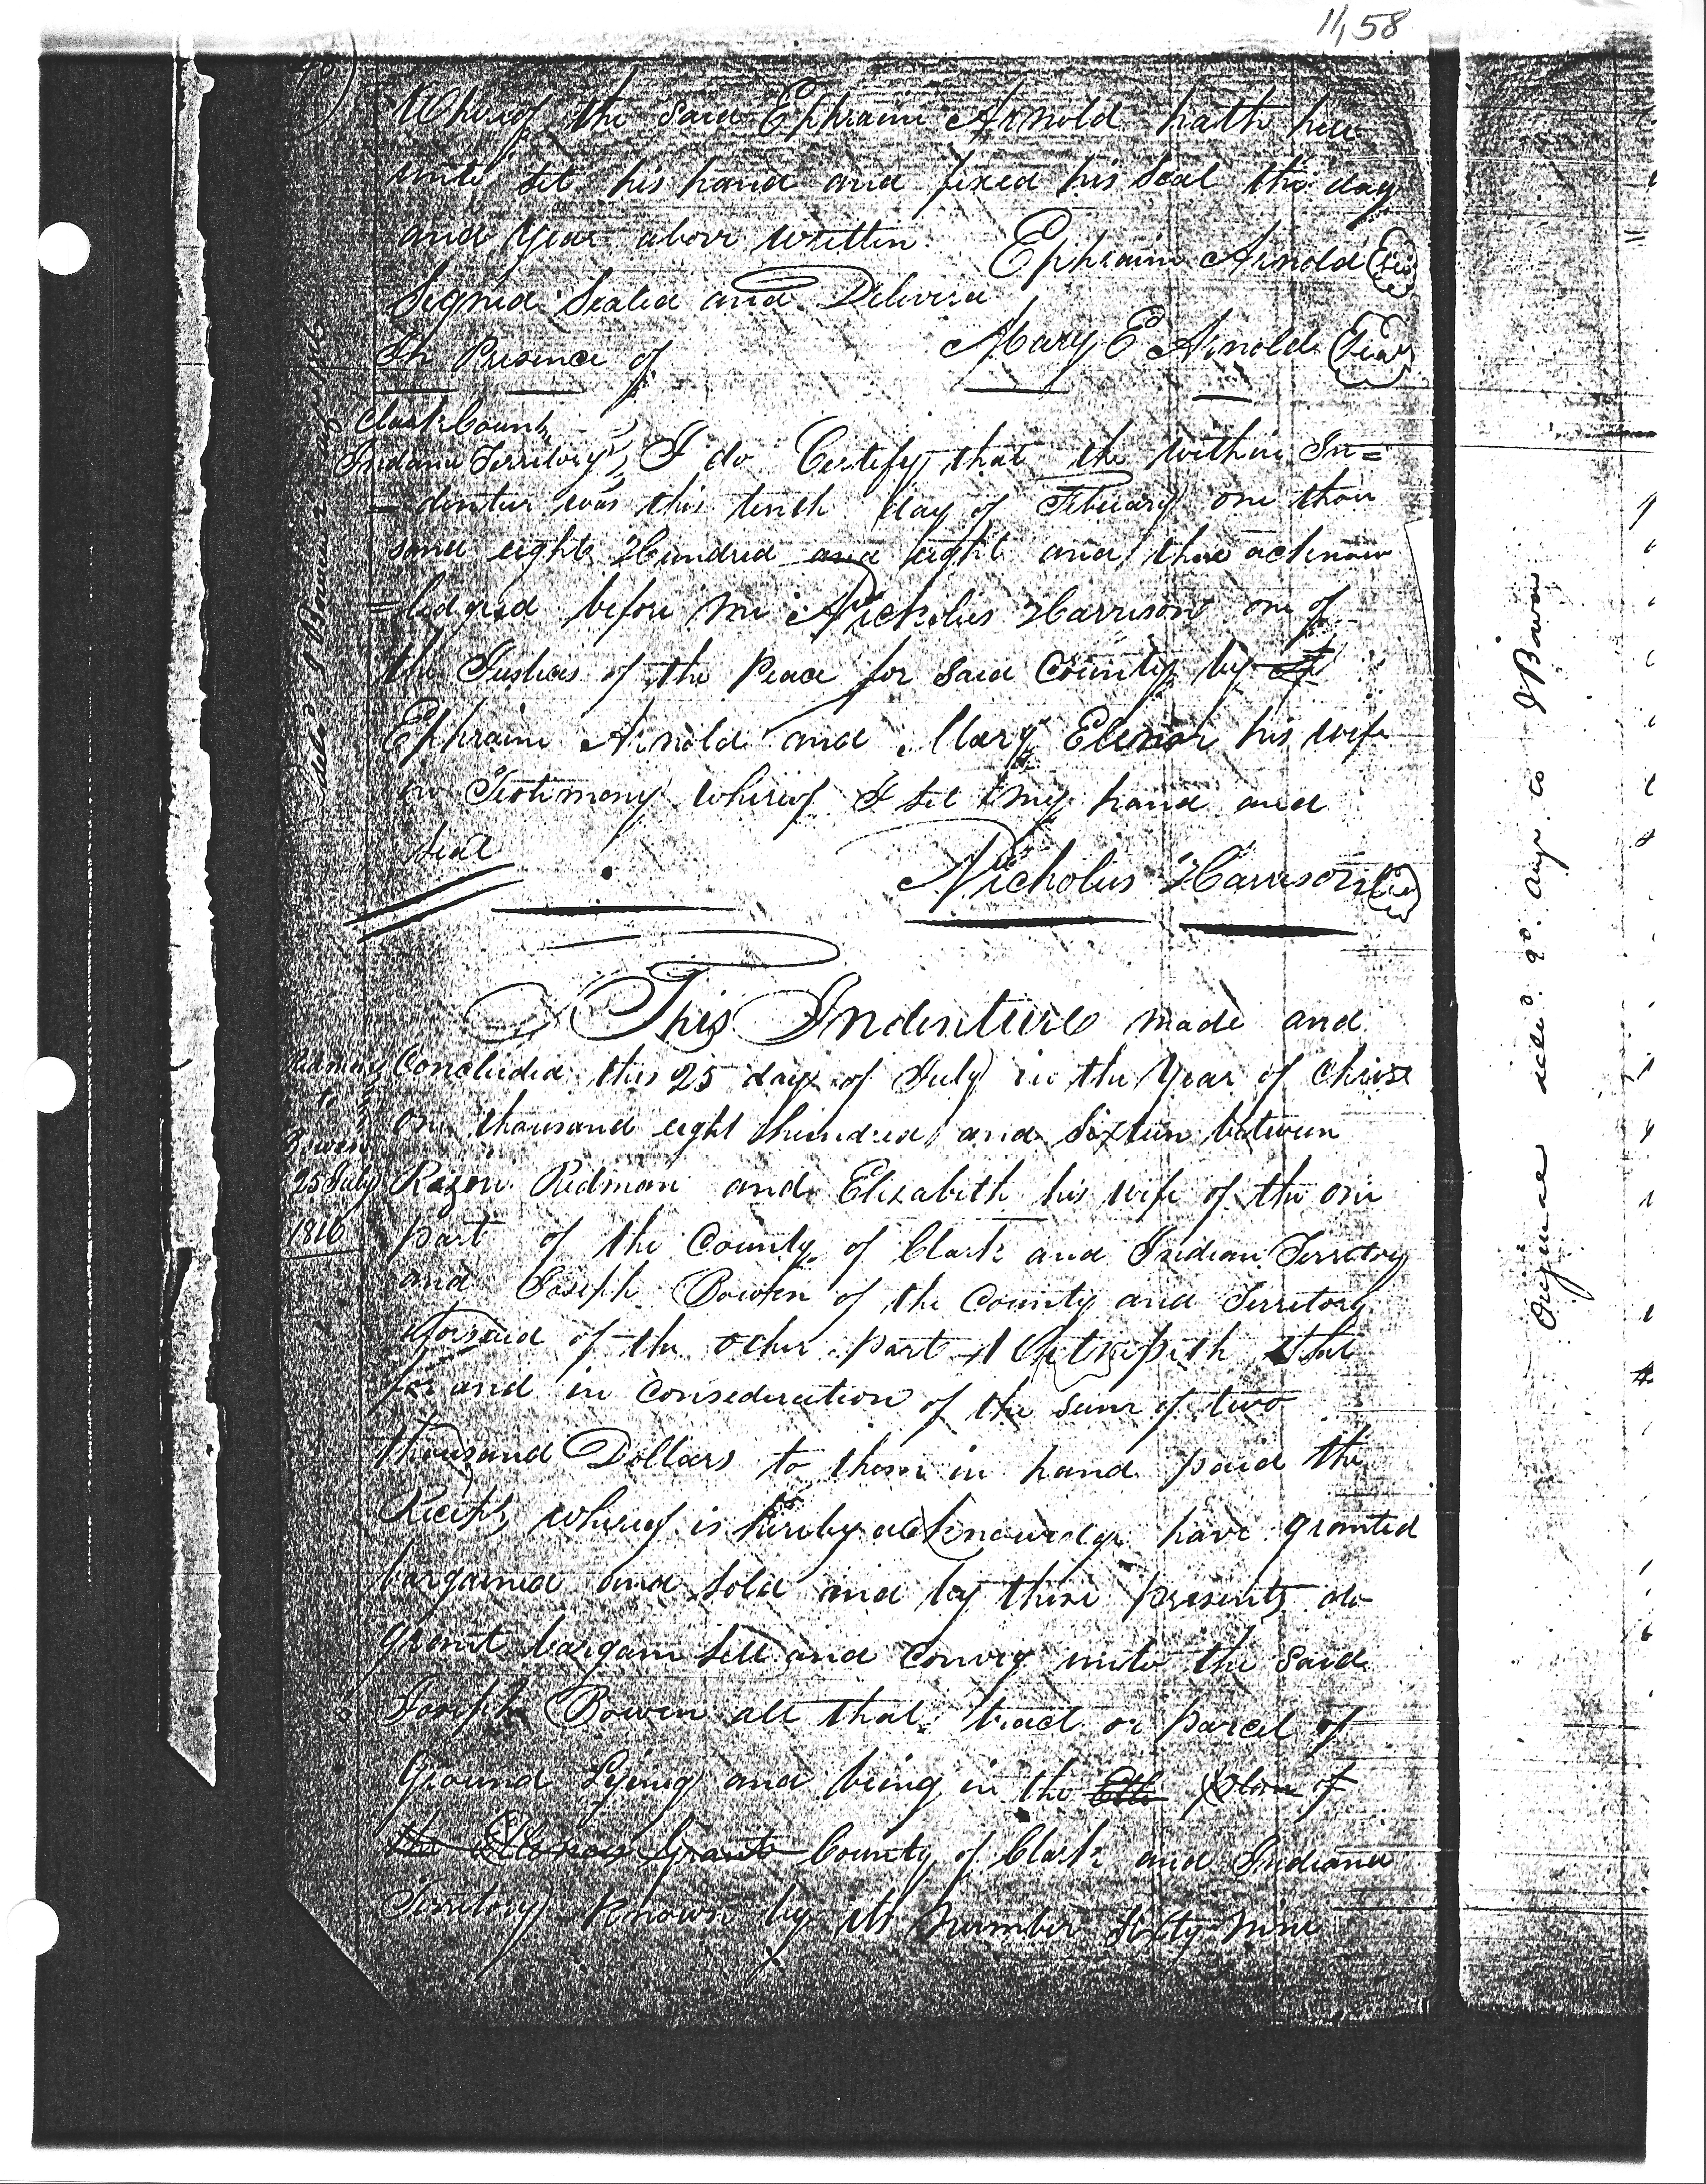 11,58
Whereof the said Ephraim Arnold hath here
unto set his hand and fixed his Seal the day
and year above written Ephraim Arnold Seal
Signed Sealed and Deliverd
In Presence of Mary E Arnold Seal
Clark County
Indiana Territory I do Certify that the within In=
=dentur was this tenth day of Febuary one thou
sand eight Hundred and eight and there acknow
=ledged before me Nicholus Harrison one of
the Justices of the Peace for said County by
Ephraim Arnold and Mary Elenor his wife
in Testimony whereof I set my hand and
seal Nicholus Harrison Seal
This Indenture made and
Concluded this 25 day of July in the Year of Christ
one thousand eight hundred and sixteen between
Rezon Redman and Elizabeth his wife of the one
part of the County of Clark and Indian Territory
and Joseph Bowen of the County and Territory
aforsaid of the other part Witnesseth that
for and in Consideration of the sum of two
thousand Dollars to them in hand paid the
Receipt whereof is hereby acknowledge have granted
bargained and sold and by these presents do
grant bargain sell and convey unto the said
Joseph Bowen all that tract or parcel of
Ground Lying and being in the plan of
the Illenois Grant County of Clark and Indiana
Territory Known by its Number Sixty nine
x
Redman
to
Bowen
25 July
1816
Original deld. J Bowen